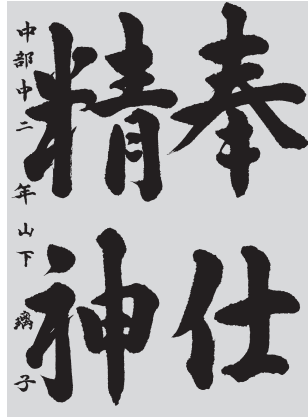 奉仕
精神
中部中二年山下璃子